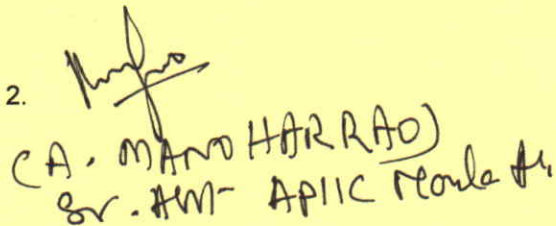 2.
(A. MANOHAR RAO)
Sr. AM- APIIC Moula Ali